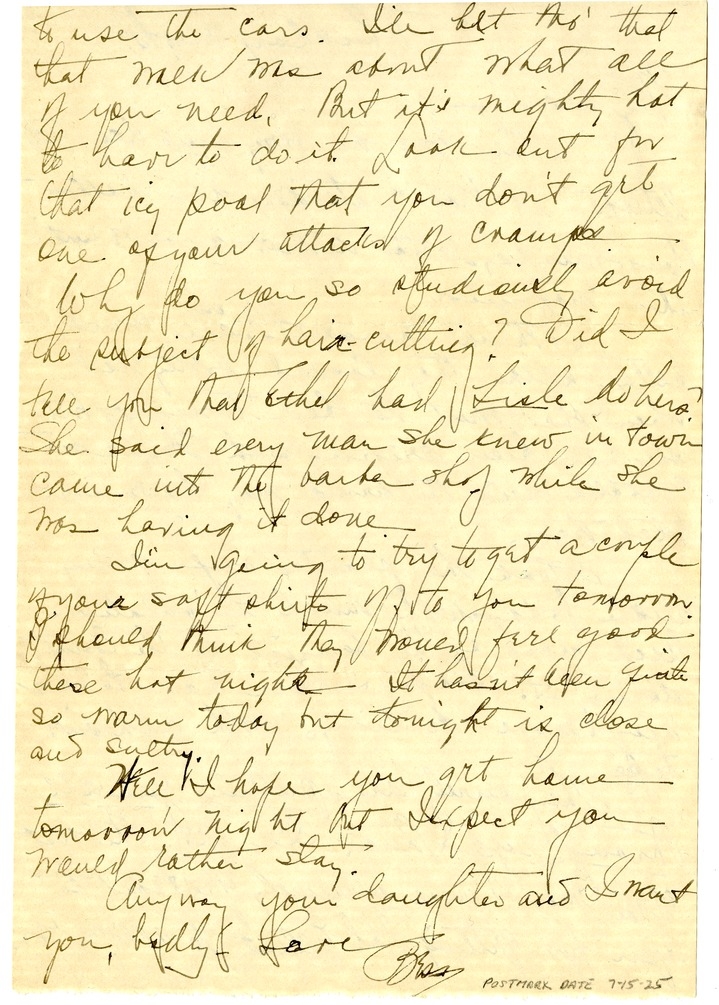 to use the cars. I'll bet tho' that
that walk was about what all
of you need. But it's mighty hot
to have to do it. Look out for
that icy pool that you don't get
one of your attacks of cramps
Why do you so studiously avoid
the subject of hair-cutting? Did I
tell you that Ethel had Lisle do hers?
She said every man she knew in town
came into the barber shop while she
was having it done.
I'm going to try to get a couple
of your soft shirts off to you tomorrow.
I should think they would feel good
these hot nights It hasn't been quite
so warm today but tonight is close
and sultry.
Well I hope you get home
tomorrow night but I expect you
would rather stay.
Anyway your daughter and I want
you, badly. Love
Bess
POSTMARK DATE 7-15-25